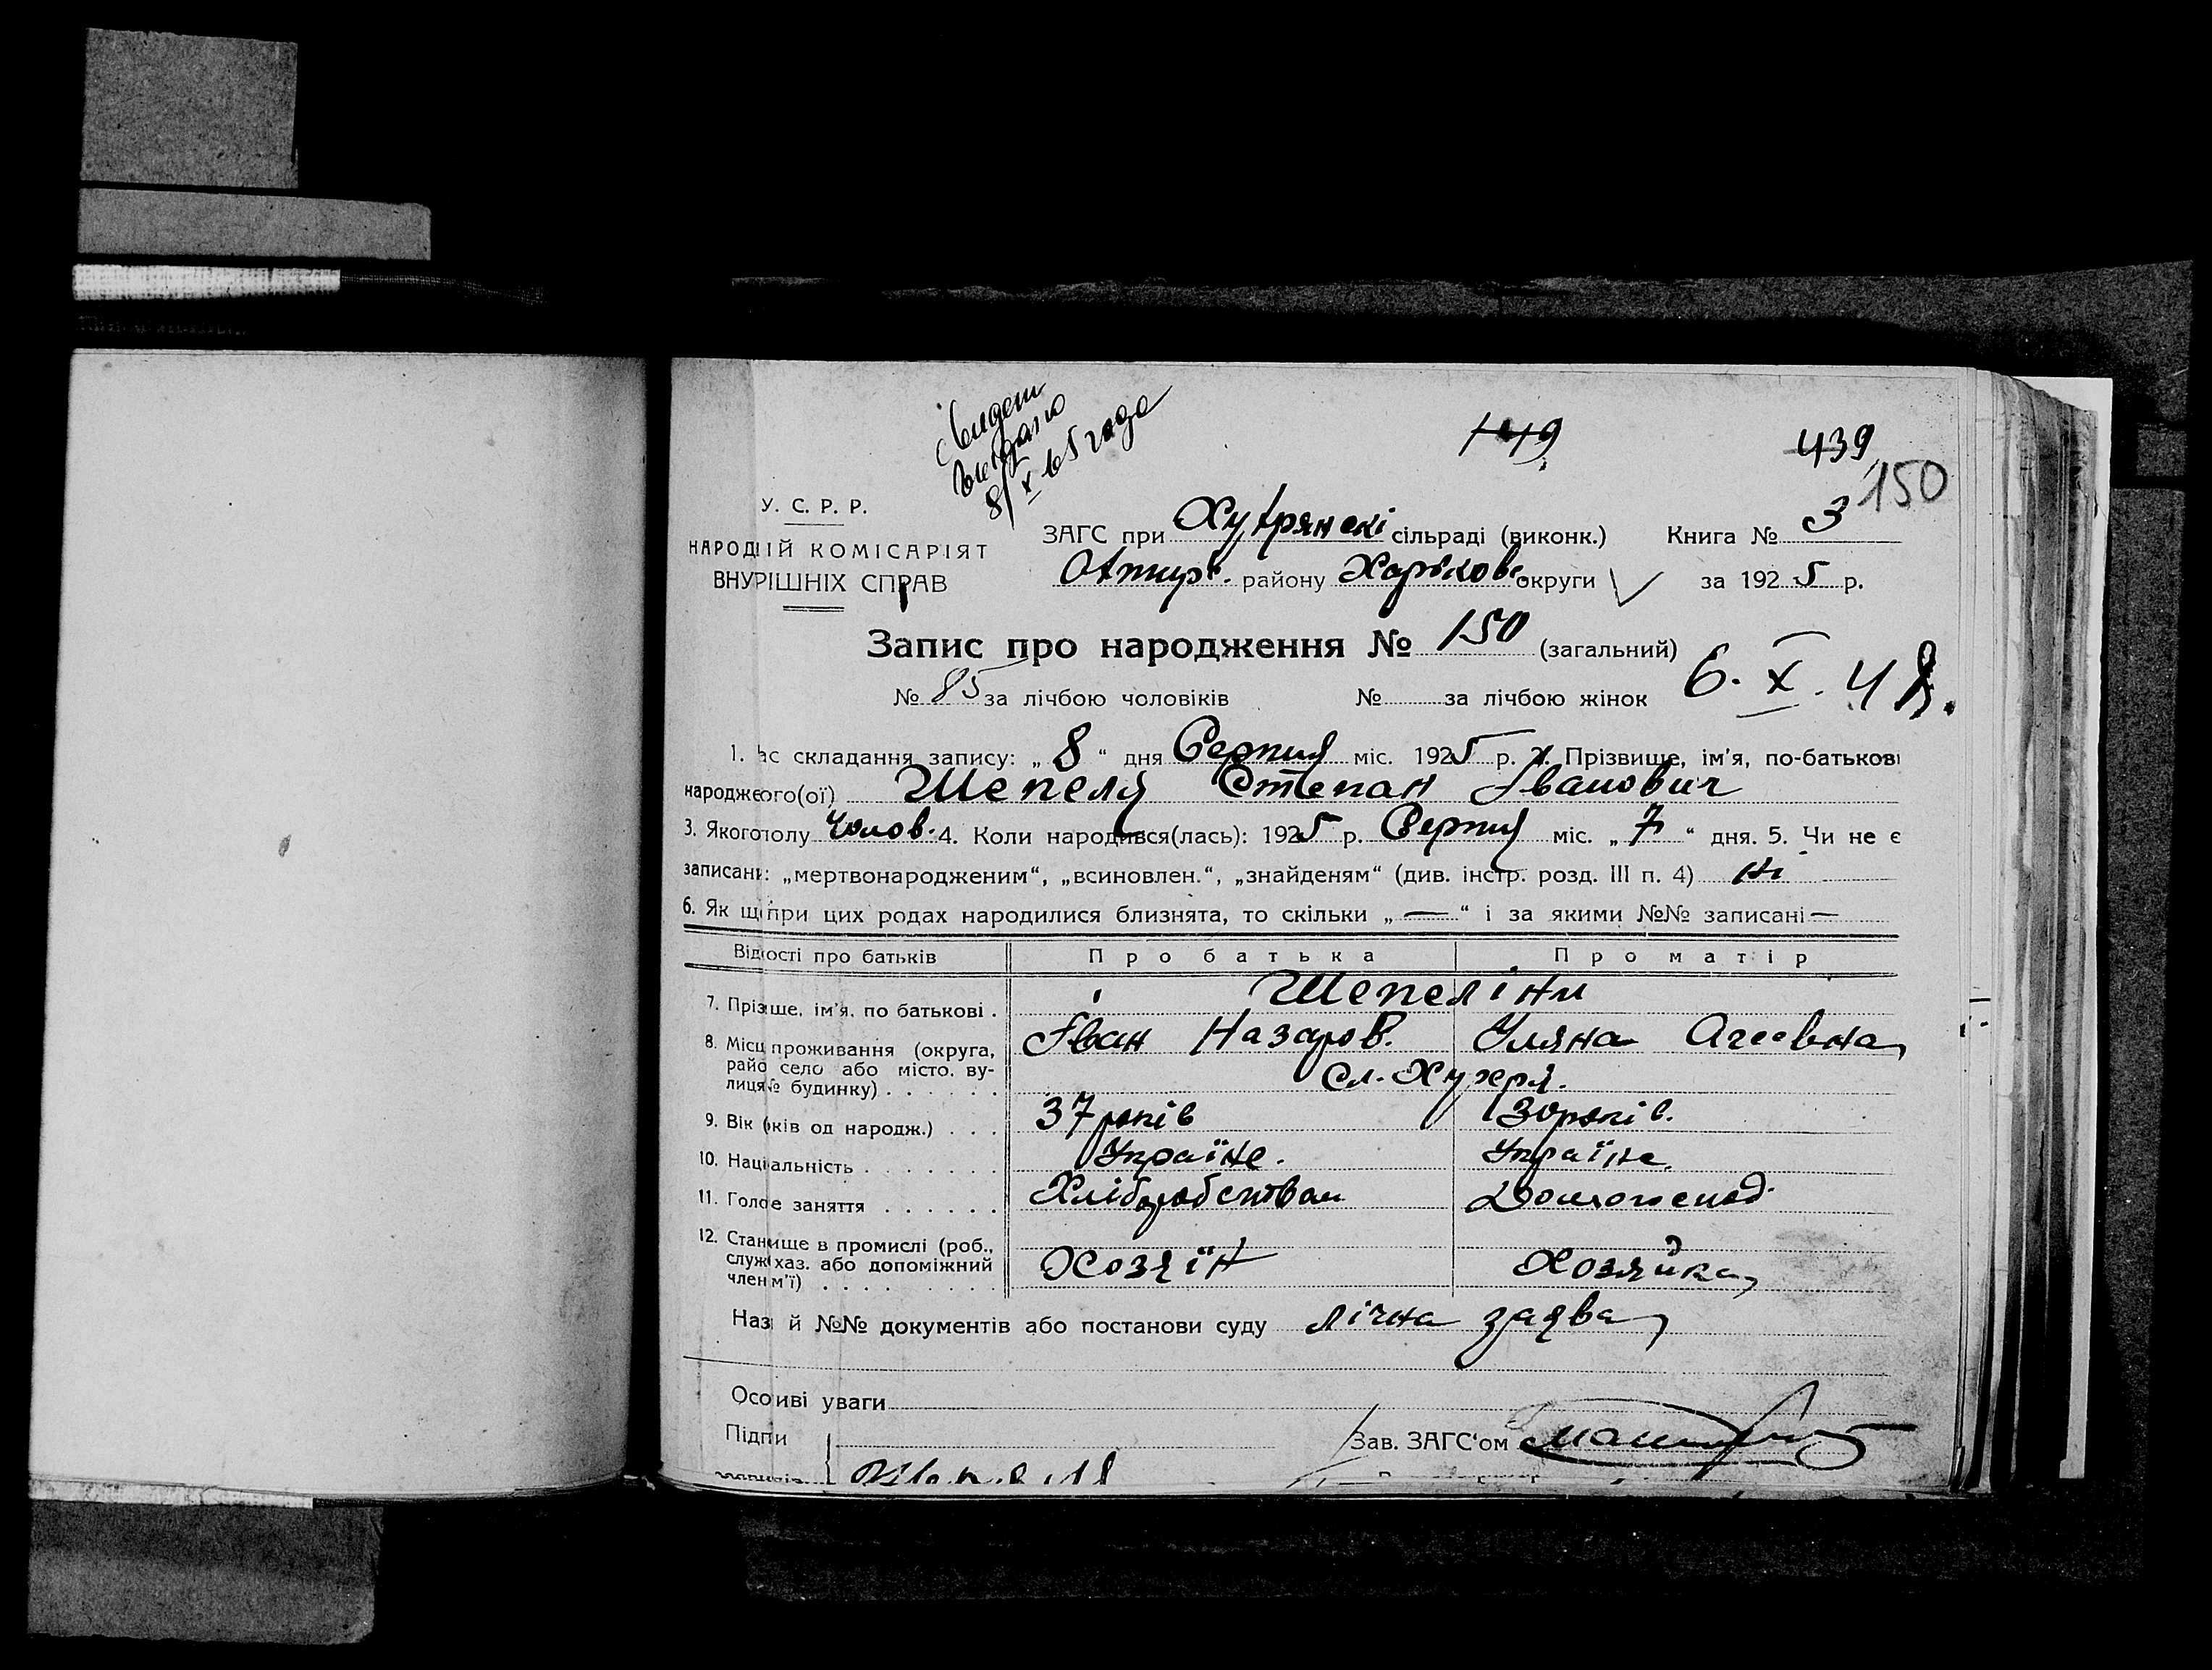 свидет
выдано
8/X 65 года
149
439
150
У. С. Р. Р.
НАРОДНІЙ КОМІСАРІЯТ
ВНУРІШНІХ СПРАВ
ЗАГС при Хухрянскі сільраді (виконк.) Книга № 3
Охтирс. району Харьковс округи за 1925 р.
Запис про народження № 150 (загальний)
6. X. 48.
№ 85 за лічбою чоловіків № за лічбою жінок
1. ас складання запису: „ 8 “ дня Серпня міс. 1925 р. 2. Прізвище, ім'я, по-батькові
народжеого(ої) Шепеля Степан Іванович
3. Якого полу Чолов. 4. Коли народився(лась): 1925 р. Серпня міс. „ 7 “ дня. 5. Чи не є
записани: „мертвонародженим“, „всиновлен.“, „знайденям“ (див. інстр. розд. III п. 4) Ні
6. Як що при цих родах народилися близнята, то скільки „ — “ і за якими №№ записані —
Відості про батьків Про батька Про матір
7. Прізвише, ім'я, по батькові . Шепеліни
Іван Назаров. Уляна Агеевна
8. Місц проживання (округа,
райо село або місто, ву-
лиця № будинку) . . . . . . Сл. Хухря.
9. Вік (оків од народж.) . . . 37 років 30 років.
10. Націальність . . . . . . . Україне. Україне.
11. Голое заняття . . . . . . Хліборобством Домогоспод.
12. Становище в промислі (роб.,
служ хаз. або допоміжний
член м'ї) . . . . . . . . . Хозяїн Хозяйка
Назі й №№ документів або постанови суду лічна заява
Особиві уваги
Підпи
Зав. ЗАГС‘ом